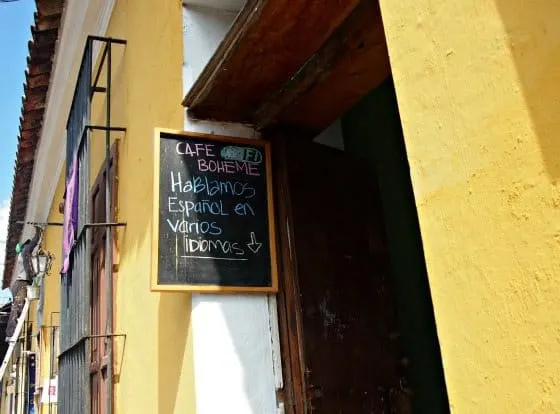 CAFE
BOHEME
Hablamos
Español en
Varios
idiomas